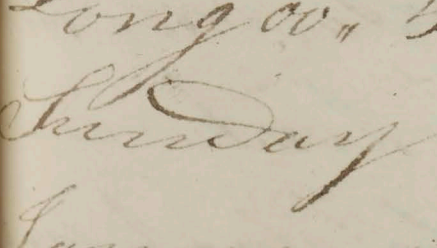 Long 00,,
Sunday